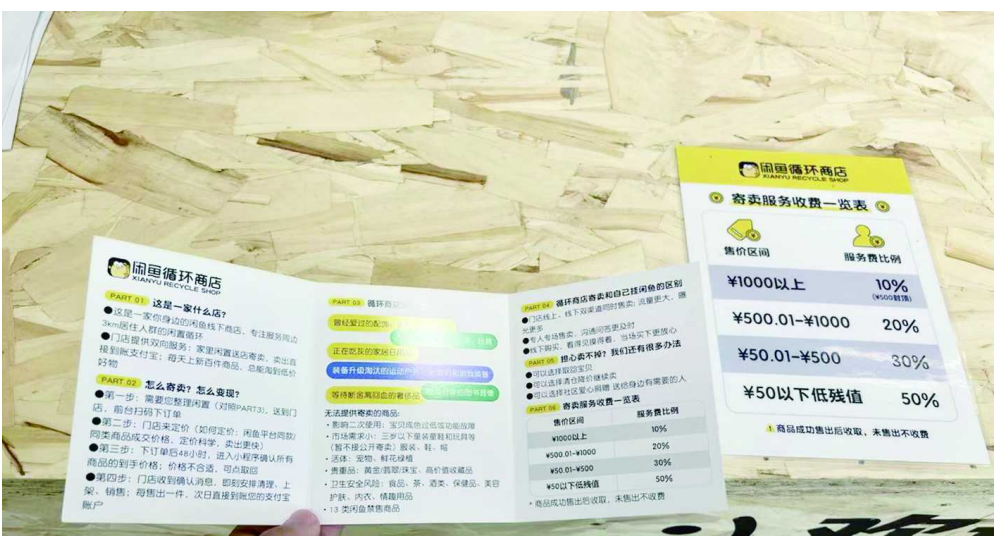 闲鱼循环商店
XIANYU RECYCLE SHOP
PART 01 这是一家什么店?
●这是一家你身边的闲鱼线下商店,专注服务周边
3km居住人群的闲置循环
●门店提供双向服务:家里闲置送店寄卖,卖出直
接到账支付宝;每天上新百件商品,总能淘到低价
好物
PART 02 怎么寄卖?怎么变现?
●第一步:需要您整理闲置(对照PART3),送到门
店,前台扫码下订单
●第二步:门店来定价(如何定价:闲鱼平台同款/
同类商品成交价格,定价科学,卖出更快)
●第三步:下订单后48小时,进入小程序确认所有
商品的到手价格;价格不合适,可点取回
●第四步:门店收到确认消息,即刻安排清理、上
架、销售;每售出一件,次日直接到账您的支付宝
账户
PART 03 循环商
曾经爱过的配饰
正在吃灰的家居日用
装备升级淘汰的运动户外
等待断舍离回血的奢侈品
无法提供寄卖的商品:
· 影响二次使用:宝贝成色过低或功能故障
· 市场需求小:三岁以下是装童鞋和玩具等
(暂不接公开寄卖)服装、鞋、帽
· 活体:宠物、鲜花绿植
· 贵重品:黄金/翡翠/珠宝、高价值收藏品
· 卫生安全风险:食品、茶、酒类、保健品、美容
护肤、内衣、情趣用品
· 13 类闲鱼禁售商品
PART 04 循环商店寄卖和自己挂闲鱼的区别
●门店线上、线下双渠道同时售卖:流量更大、曝
光更多
●专人专场售卖,沟通问答更及时
●线下购买,看得见摸得着,当场买下更放心
PART 05 担心卖不掉?我们还有很多办法
●可以选择取回宝贝
●可以选择清仓降价继续卖
●可以选择社区爱心捐赠 送给身边有需要的人
PART 06 寄卖服务收费一览表
售价区间 服务费比例
¥1000以上 10%
¥500.01-¥1000 20%
¥50.01-¥500 30%
¥50以下低残值 50%
* 商品成功售出后收取,未售出不收费
闲鱼循环商店
XIANYU RECYCLE SHOP
寄卖服务收费一览表
售价区间 服务费比例
¥1000以上 10%
(¥500封顶)
¥500.01-¥1000 20%
¥50.01-¥500 30%
¥50以下低残值 50%
商品成功售出后收取,未售出不收费